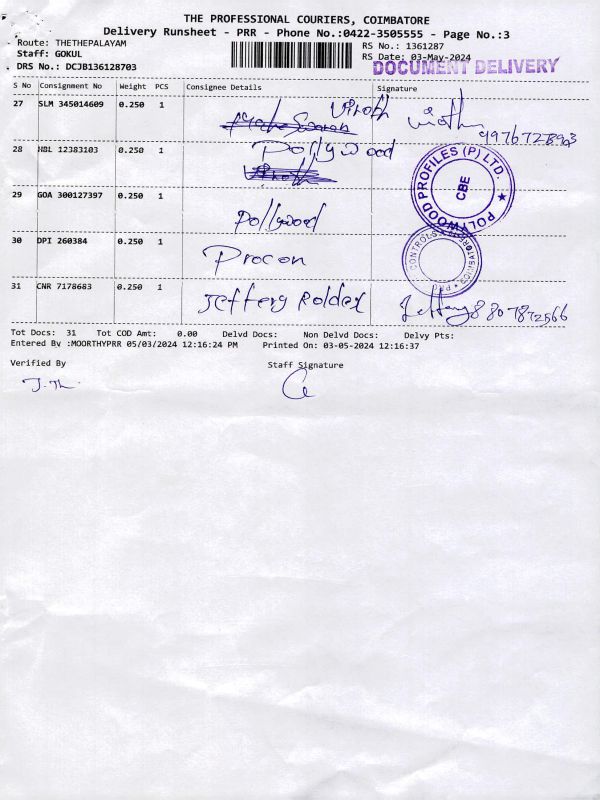 THE PROFESSIONAL COURIERS, COIMBATORE
Delivery Runsheet - PRR - Phone No.:0422-3505555 - Page No.:3
Route: THETHEPALAYAM
RS No.: 1361287
Staff: GOKUL
RS Date: 03-May-2024
DRS No.: DCJB136128703
DOCUMENT DELIVERY
S No Consignment No Weight PCS Consignee Details Signature
27 SLM 345014609 0.250 1
28 NBL 12383103 0.250 1 Pollywood
POLYWOOD PROFILES (P) LTD. CBE
29 GOA 300127397 0.250 1 Pollywood
30 DPI 260384 0.250 1 Procon
31 CNR 7178683 0.250 1 Jeffery Roldex
Tot Docs: 31 Tot COD Amt: 0.00 Delvd Docs: Non Delvd Docs: Delvy Pts:
Entered By :MOORTHYPRR 05/03/2024 12:16:24 PM Printed On: 03-05-2024 12:16:37
Verified By Staff Signature